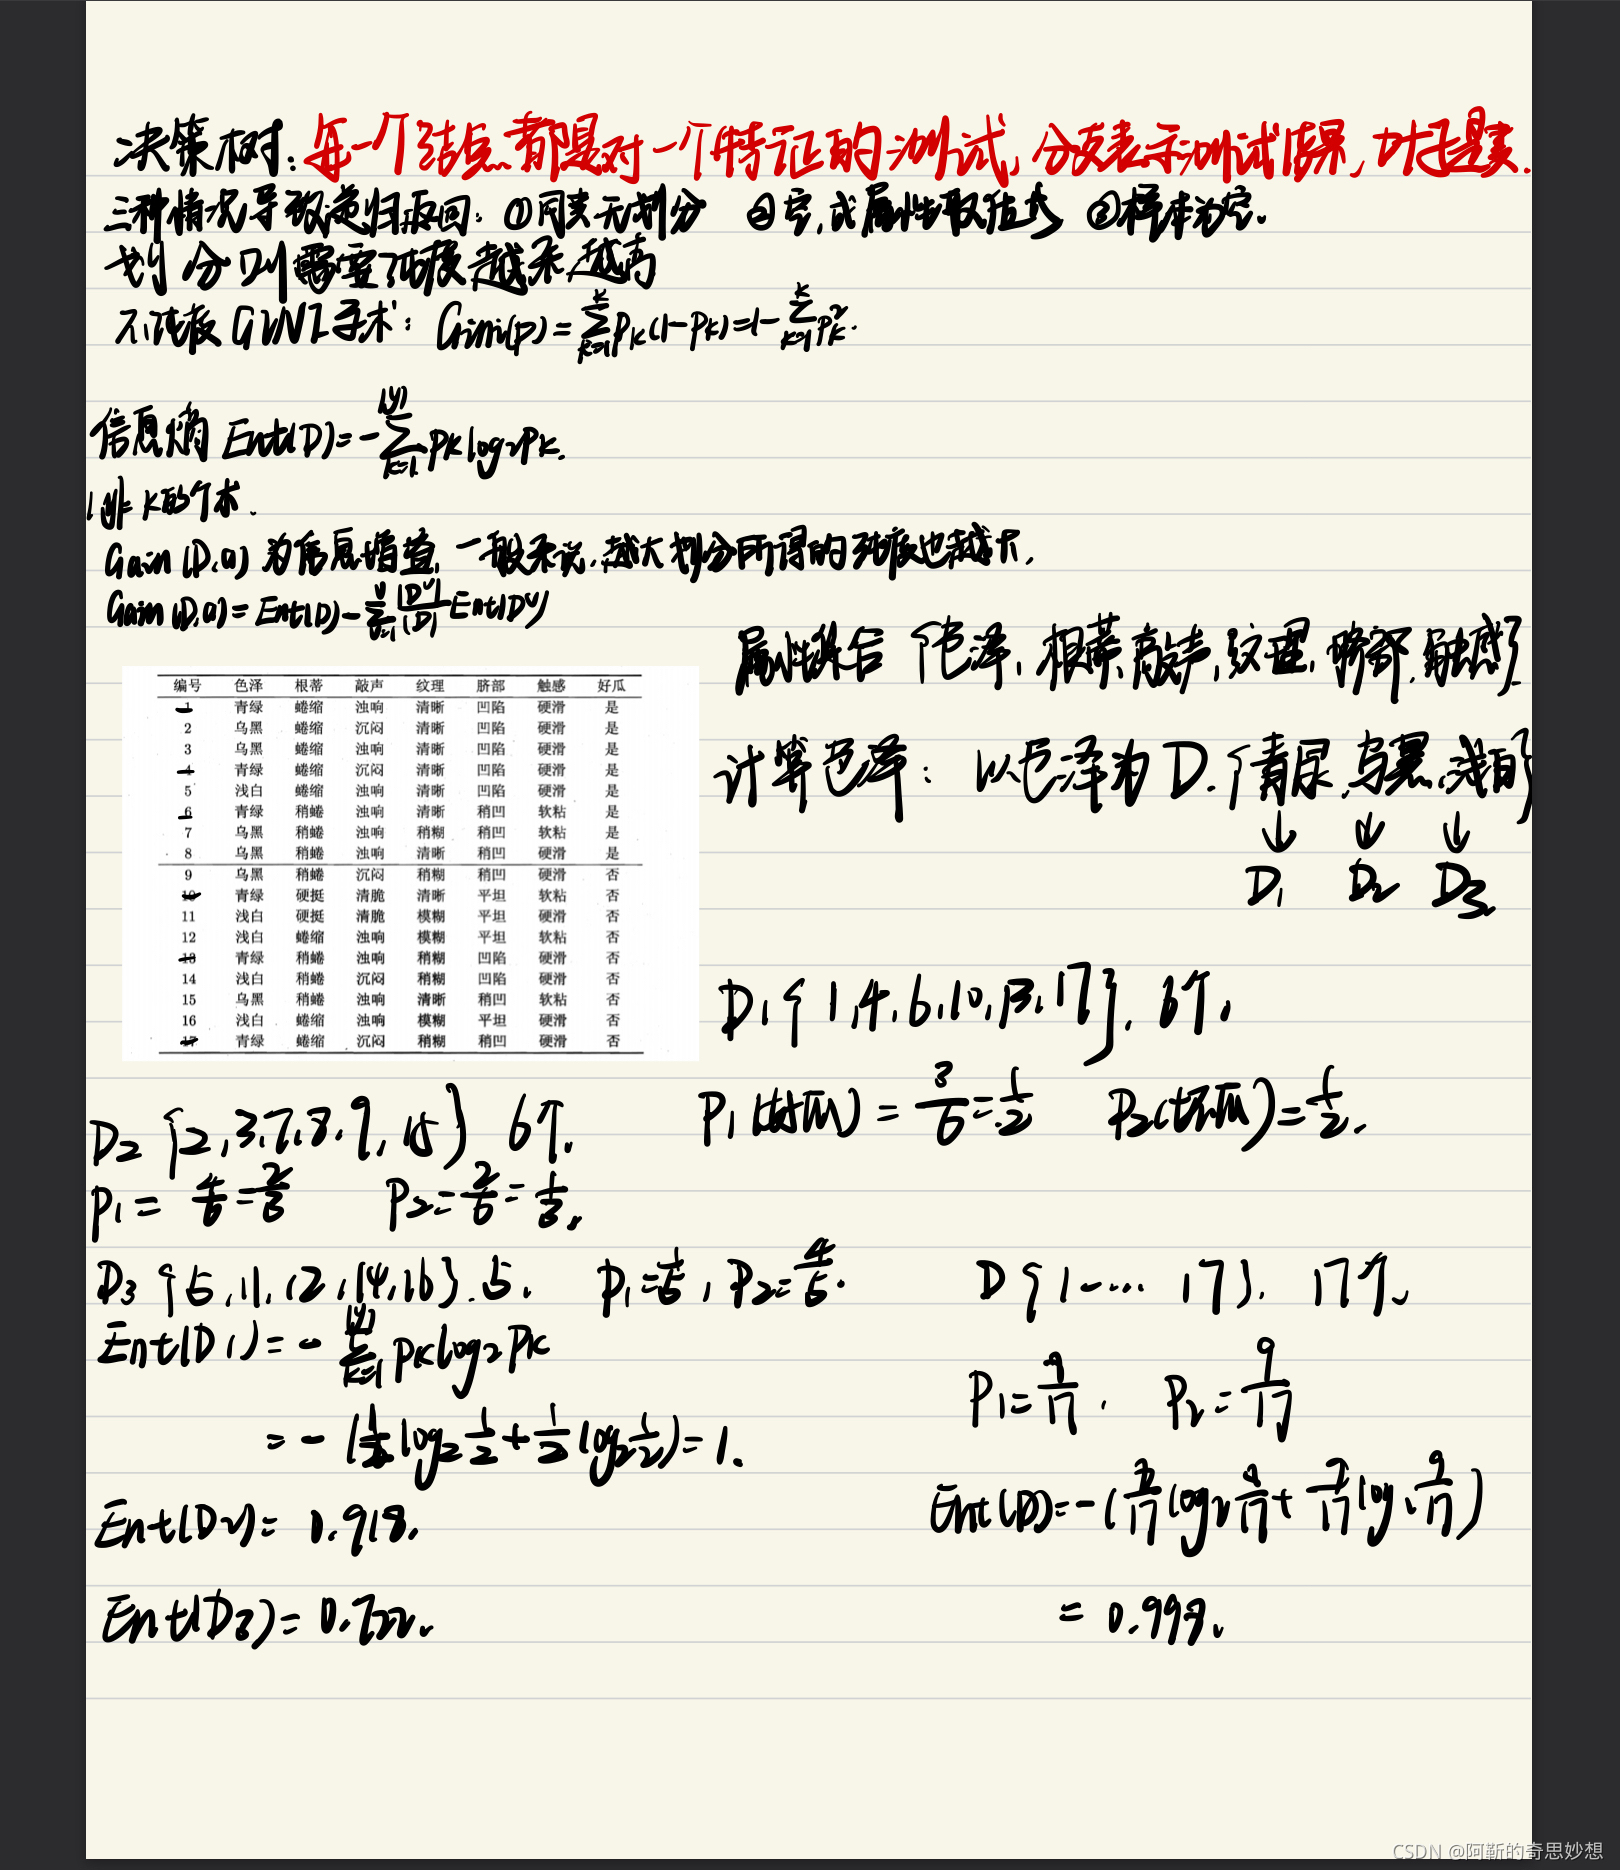 决策树：每一个结点都是对一个特征的测试，分支表示测试结果，叶子是类.
三种情况导致递归返回：①同类无划分 ②空，或属性取值 ③样本为空.
划分则需要 纯度越来越高
不纯度GINI 手术：Gini(p)=∑k=1^K pk(1-pk)=1-∑k=1^K pk².
信息熵 Ent(D)=-∑k=1^|y| pk log2 pk.
|y|是 k的个术.
Gain(D,a) 为信息增益，一般来说，越大划分所得的纯度也越大.
Gain(D,a)=Ent(D)-∑v=1^V |D^v|/|D| Ent(D^v)
属性集合 {色泽，根蒂，敲声，纹理，脐部，触感}
编号 色泽 根蒂 敲声 纹理 脐部 触感 好瓜
1 青绿 蜷缩 浊响 清晰 凹陷 硬滑 是
2 乌黑 蜷缩 沉闷 清晰 凹陷 硬滑 是
3 乌黑 蜷缩 浊响 清晰 凹陷 硬滑 是
4 青绿 蜷缩 沉闷 清晰 凹陷 硬滑 是
5 浅白 蜷缩 浊响 清晰 凹陷 硬滑 是
6 青绿 稍蜷 浊响 清晰 稍凹 软粘 是
7 乌黑 稍蜷 浊响 稍糊 稍凹 软粘 是
8 乌黑 稍蜷 浊响 清晰 稍凹 硬滑 是
9 乌黑 稍蜷 沉闷 稍糊 稍凹 硬滑 否
10 青绿 硬挺 清脆 清晰 平坦 软粘 否
11 浅白 硬挺 清脆 模糊 平坦 硬滑 否
12 浅白 蜷缩 浊响 模糊 平坦 软粘 否
13 青绿 稍蜷 浊响 稍糊 凹陷 硬滑 否
14 浅白 稍蜷 沉闷 稍糊 凹陷 硬滑 否
15 乌黑 稍蜷 浊响 清晰 稍凹 软粘 否
16 浅白 蜷缩 浊响 模糊 平坦 硬滑 否
17 青绿 蜷缩 沉闷 稍糊 稍凹 硬滑 否
计算色泽：以色泽为D.{青绿,乌黑,浅白}
↓ ↓ ↓
D1 D2 D3
D1{1,4,6,10,13,17}, 6个,
P1(好瓜)=3/6=1/2 P2(坏瓜)=1/2.
D2{2,3,7,8,9,15} 6个.
P1=4/6=2/3 P2=2/6=1/3.
D3{5,11,12,14,16}.5. P1=1/5, P2=4/5.
D{1-... 17}. 17个.
P1=9/17. P2=9/17
Ent(D1)=-∑k=1^|y| pk log2 pk
=-(1/2 log2 1/2+1/2 log2 1/2)=1.
Ent(D2)=0.918.
Ent(D3)=0.722.
=0.998.
CSDN @阿靳的奇思妙想